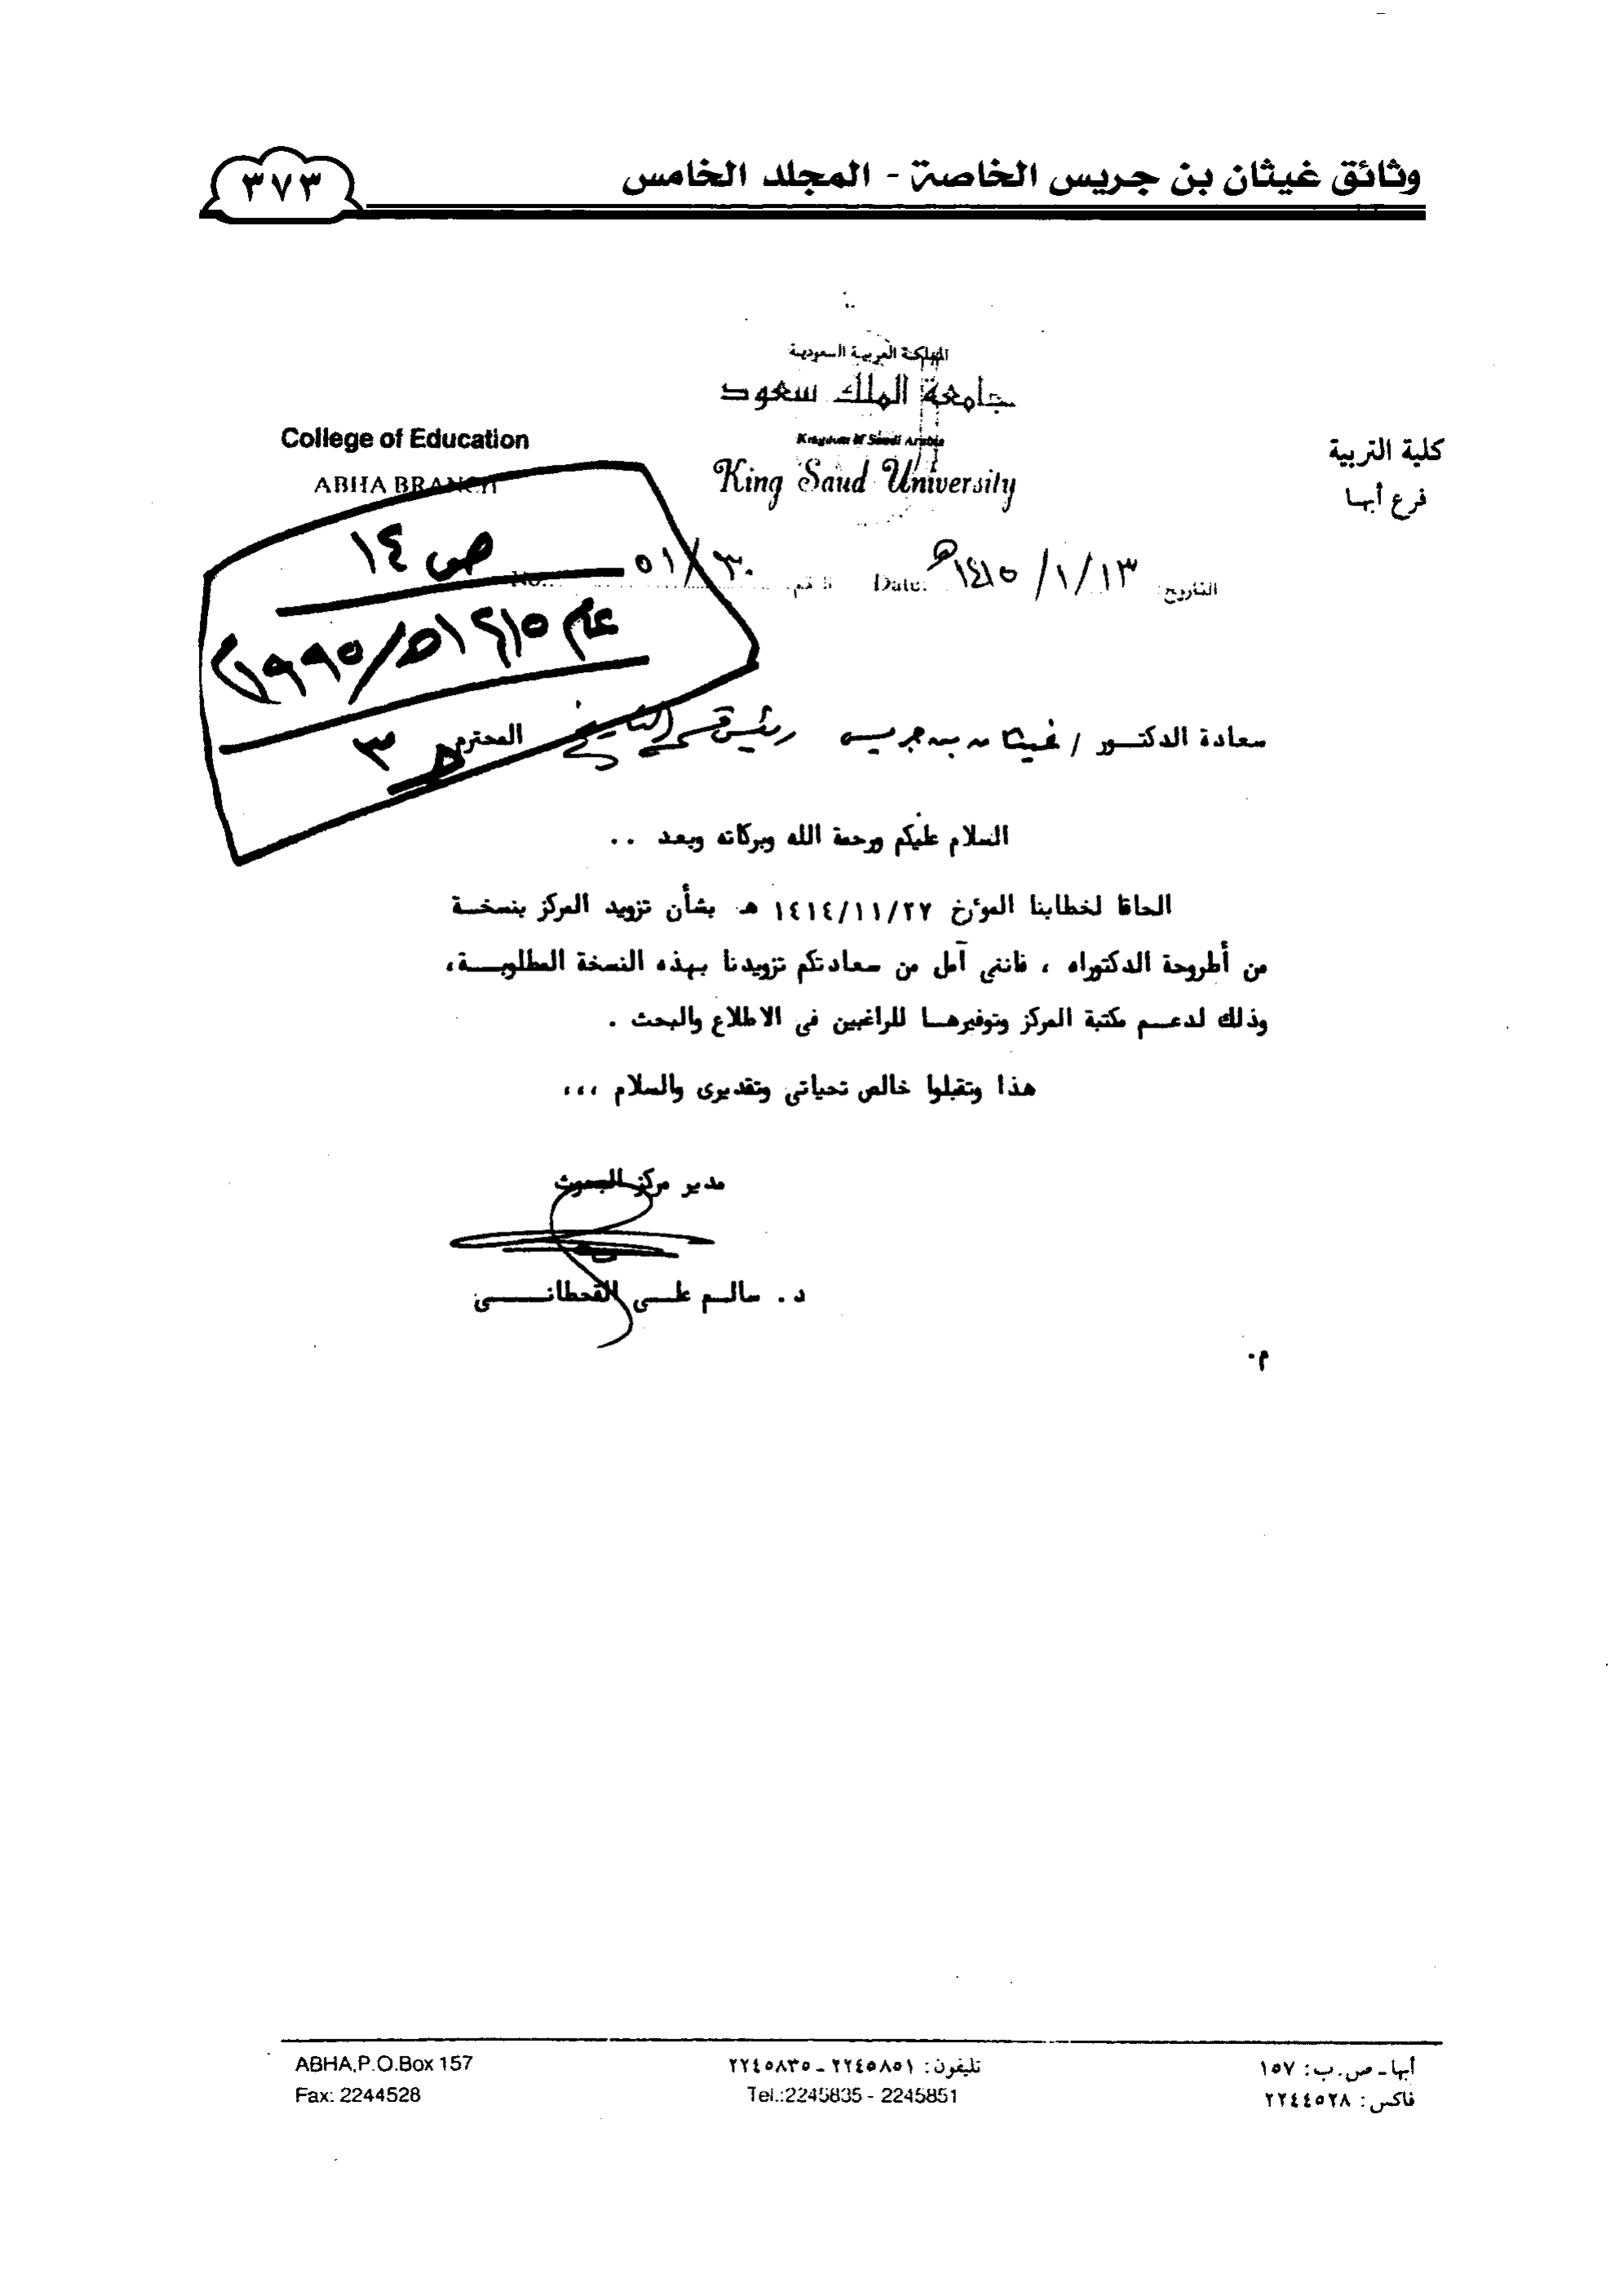 وثائق غيثان بن جريس الخاصة - المجلد الخامس
٣٧٣
المملكة العربية السعودية
جامعة الملك سعود
Kingdom of Saudi Arabia
King Saud University
كلية التربية
فرع أبها
College of Education
ABHA BRANCH
التاريخ: ١٤١٥/١/١٣هـ Date:
الرقم: ٥١/٣٠ No.:
ص ١٤
عام ١٤١٥هـ/١٩٩٥م
سعادة الدكتـــور / غيثان بن جريس رئيس قسم التاريخ المحترم
السلام عليكم ورحمة الله وبركاته وبعد ..
الحاقا لخطابنا المؤرخ ١٤١٤/١١/٢٧ هـ بشأن تزويد المركز بنسخـة
من أطروحة الدكتوراه ، فانني آمل من سعادتكم تزويدنا بهذه النسخة المطلوبــة،
وذلك لدعـم مكتبة المركز وتوفيرهـا للراغبين في الاطلاع والبحث .
هذا وتقبلوا خالص تحياتي وتقديرى والسلام ،،،
مدير مركز البحوث
د . سالـم علـى القحطانــــى
م.
أبها ـ ص.ب: ١٥٧
فاكس: ٢٢٤٤٥٢٨
تليفون: ٢٢٤٥٨٥١ ـ ٢٢٤٥٨٣٥
Tel.:2245835 - 2245851
ABHA,P.O.Box 157
Fax: 2244528